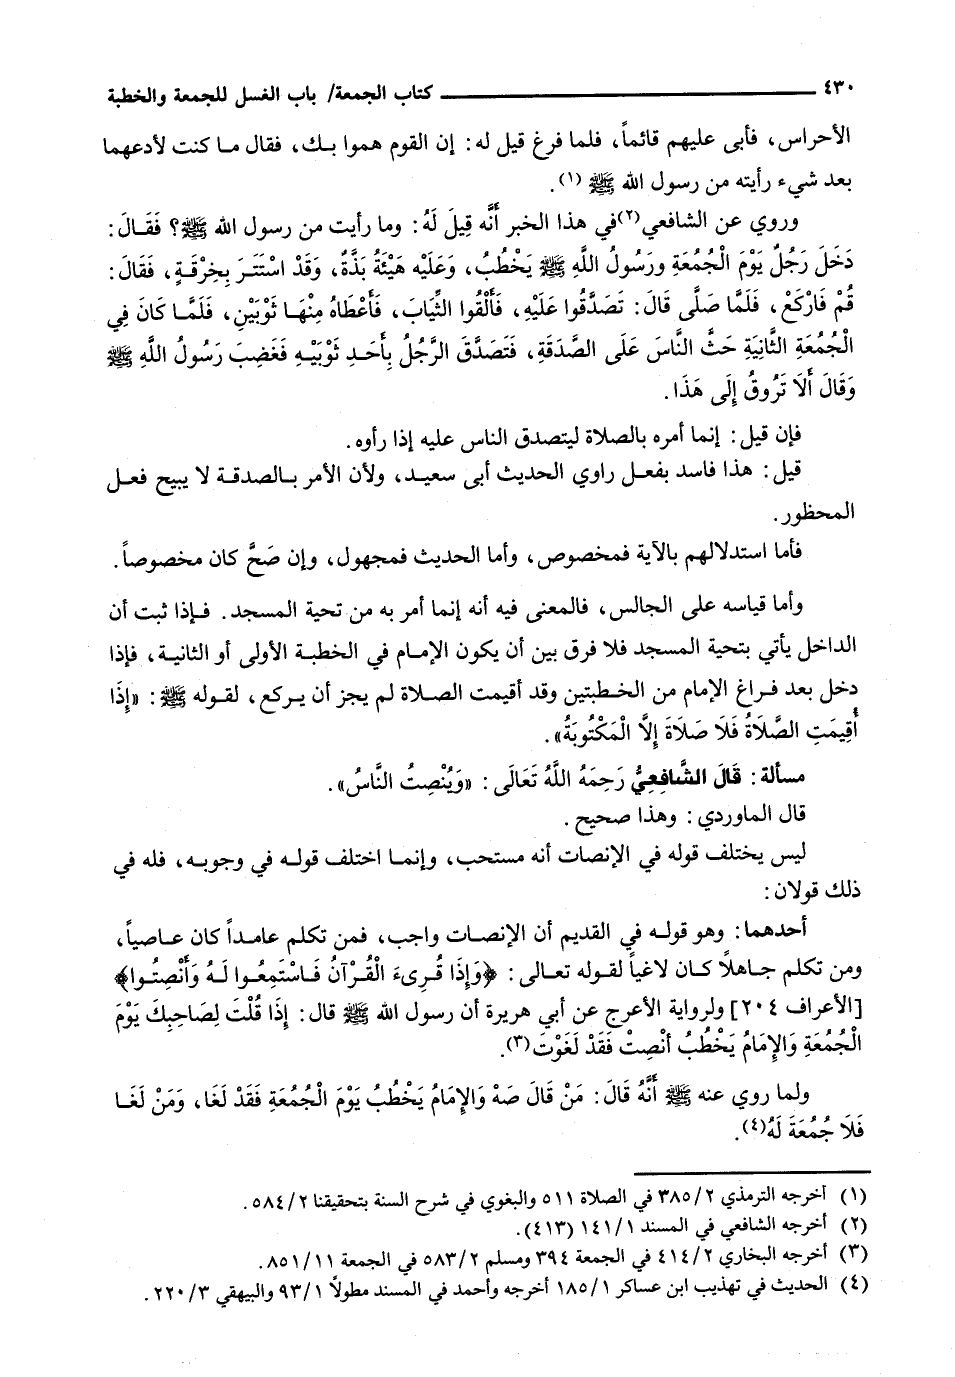 ٤٣٠ ــــــــــــــــــــ كتاب الجمعة/ باب الغسل للجمعة والخطبة
الأحراس، فأبى عليهم قائماً، فلما فرغ قيل له: إن القوم هموا بك، فقال ما كنت لأدعهما
بعد شيء رأيته من رسول الله ﷺ (١).
وروي عن الشافعي(٢)في هذا الخبر أَنَّه قِيلَ لَهُ: وما رأيت من رسول الله ﷺ؟ فَقَالَ:
دَخَلَ رَجُلٌ يَوْمَ الْجُمُعَةِ ورَسُولُ اللَّهِ ﷺ يَخْطُبُ، وَعَلَيْه هَيْئَةُ بَذَّةٌ، وَقَدْ اسْتَتَرَ بِخِرْقَةٍ، فَقَالَ:
قُمْ فَارْكَعْ، فَلَمَّا صَلَّى قَالَ: تَصَدَّقُوا عَلَيْهِ، فَأَلْقُوا الثِّيَابَ، فَأَعْطَاهُ مِنْهَا ثَوْبَيْنِ، فَلَمَّا كَانَ فِي
الْجُمُعَةِ الثَّانِيَةِ حَثَّ النَّاسَ عَلَى الصَّدَقَةِ، فَتَصَدَّقَ الرَّجُلُ بِأَحَدِ ثَوْبَيْهِ فَغَضِبَ رَسُولُ اللَّهِ ﷺ
وَقَالَ أَلَا تَرُوقُ إِلَى هَذَا.
فإن قيل: إنما أمره بالصلاة ليتصدق الناس عليه إذا رأوه.
قيل: هذا فاسد بفعل راوي الحديث أبي سعيد، ولأن الأمر بالصدقة لا يبيح فعل
المحظور.
فأما استدلالهم بالآية فمخصوص، وأما الحديث فمجهول، وإن صَحَّ كان مخصوصاً.
وأما قياسه على الجالس، فالمعنى فيه أنه إنما أمر به من تحية المسجد. فإذا ثبت أن
الداخل يأتي بتحية المسجد فلا فرق بين أن يكون الإمام في الخطبة الأولى أو الثانية، فإذا
دخل بعد فراغ الإمام من الخطبتين وقد أقيمت الصلاة لم يجز أن يركع، لقوله ﷺ: «إِذَا
أُقِيمَتِ الصَّلَاةُ فَلَا صَلَاةَ إِلَّا الْمَكْتُوبَةُ».
مسألة: قَالَ الشَّافِعِيُّ رَحِمَهُ اللَّهُ تَعَالَى: «وَيُنْصِتُ النَّاسُ».
قال الماوردي: وهذا صحيح.
ليس يختلف قوله في الإنصات أنه مستحب، وإنما اختلف قوله في وجوبه، فله في
ذلك قولان:
أحدهما: وهو قوله في القديم أن الإنصات واجب، فمن تكلم عامداً كان عاصياً،
ومن تكلم جاهلاً كان لاغياً لقوله تعالى: ﴿وَإِذَا قُرِىءَ الْقُرْآنُ فَاسْتَمِعُوا لَهُ وَأَنْصِتُوا﴾
[الأعراف ٢٠٤] ولرواية الأعرج عن أبي هريرة أن رسول الله ﷺ قال: إِذَا قُلْتَ لِصَاحِبِكَ يَوْمَ
الْجُمُعَةِ وَالإِمَامُ يَخْطُبُ أَنْصِتْ فَقَدْ لَغَوْتَ(٣).
ولما روي عنه ﷺ أَنَّهُ قَالَ: مَنْ قَالَ صَهْ وَالإِمَامُ يَخْطُبُ يَوْمَ الْجُمُعَةِ فَقَدْ لَغَا، وَمَنْ لَغَا
فَلَا جُمُعَةَ لَهُ(٤).
(١) أخرجه الترمذي ٣٨٥/٢ في الصلاة ٥١١ والبغوي في شرح السنة بتحقيقنا ٥٨٤/٢.
(٢) أخرجه الشافعي في المسند ١٤١/١ (٤١٣).
(٣) أخرجه البخاري ٤١٤/٢ في الجمعة ٣٩٤ ومسلم ٥٨٣/٢ في الجمعة ٨٥١/١١.
(٤) الحديث في تهذيب ابن عساكر ١٨٥/١ أخرجه وأحمد في المسند مطولاً ٩٣/١ والبيهقي ٢٢٠/٣.